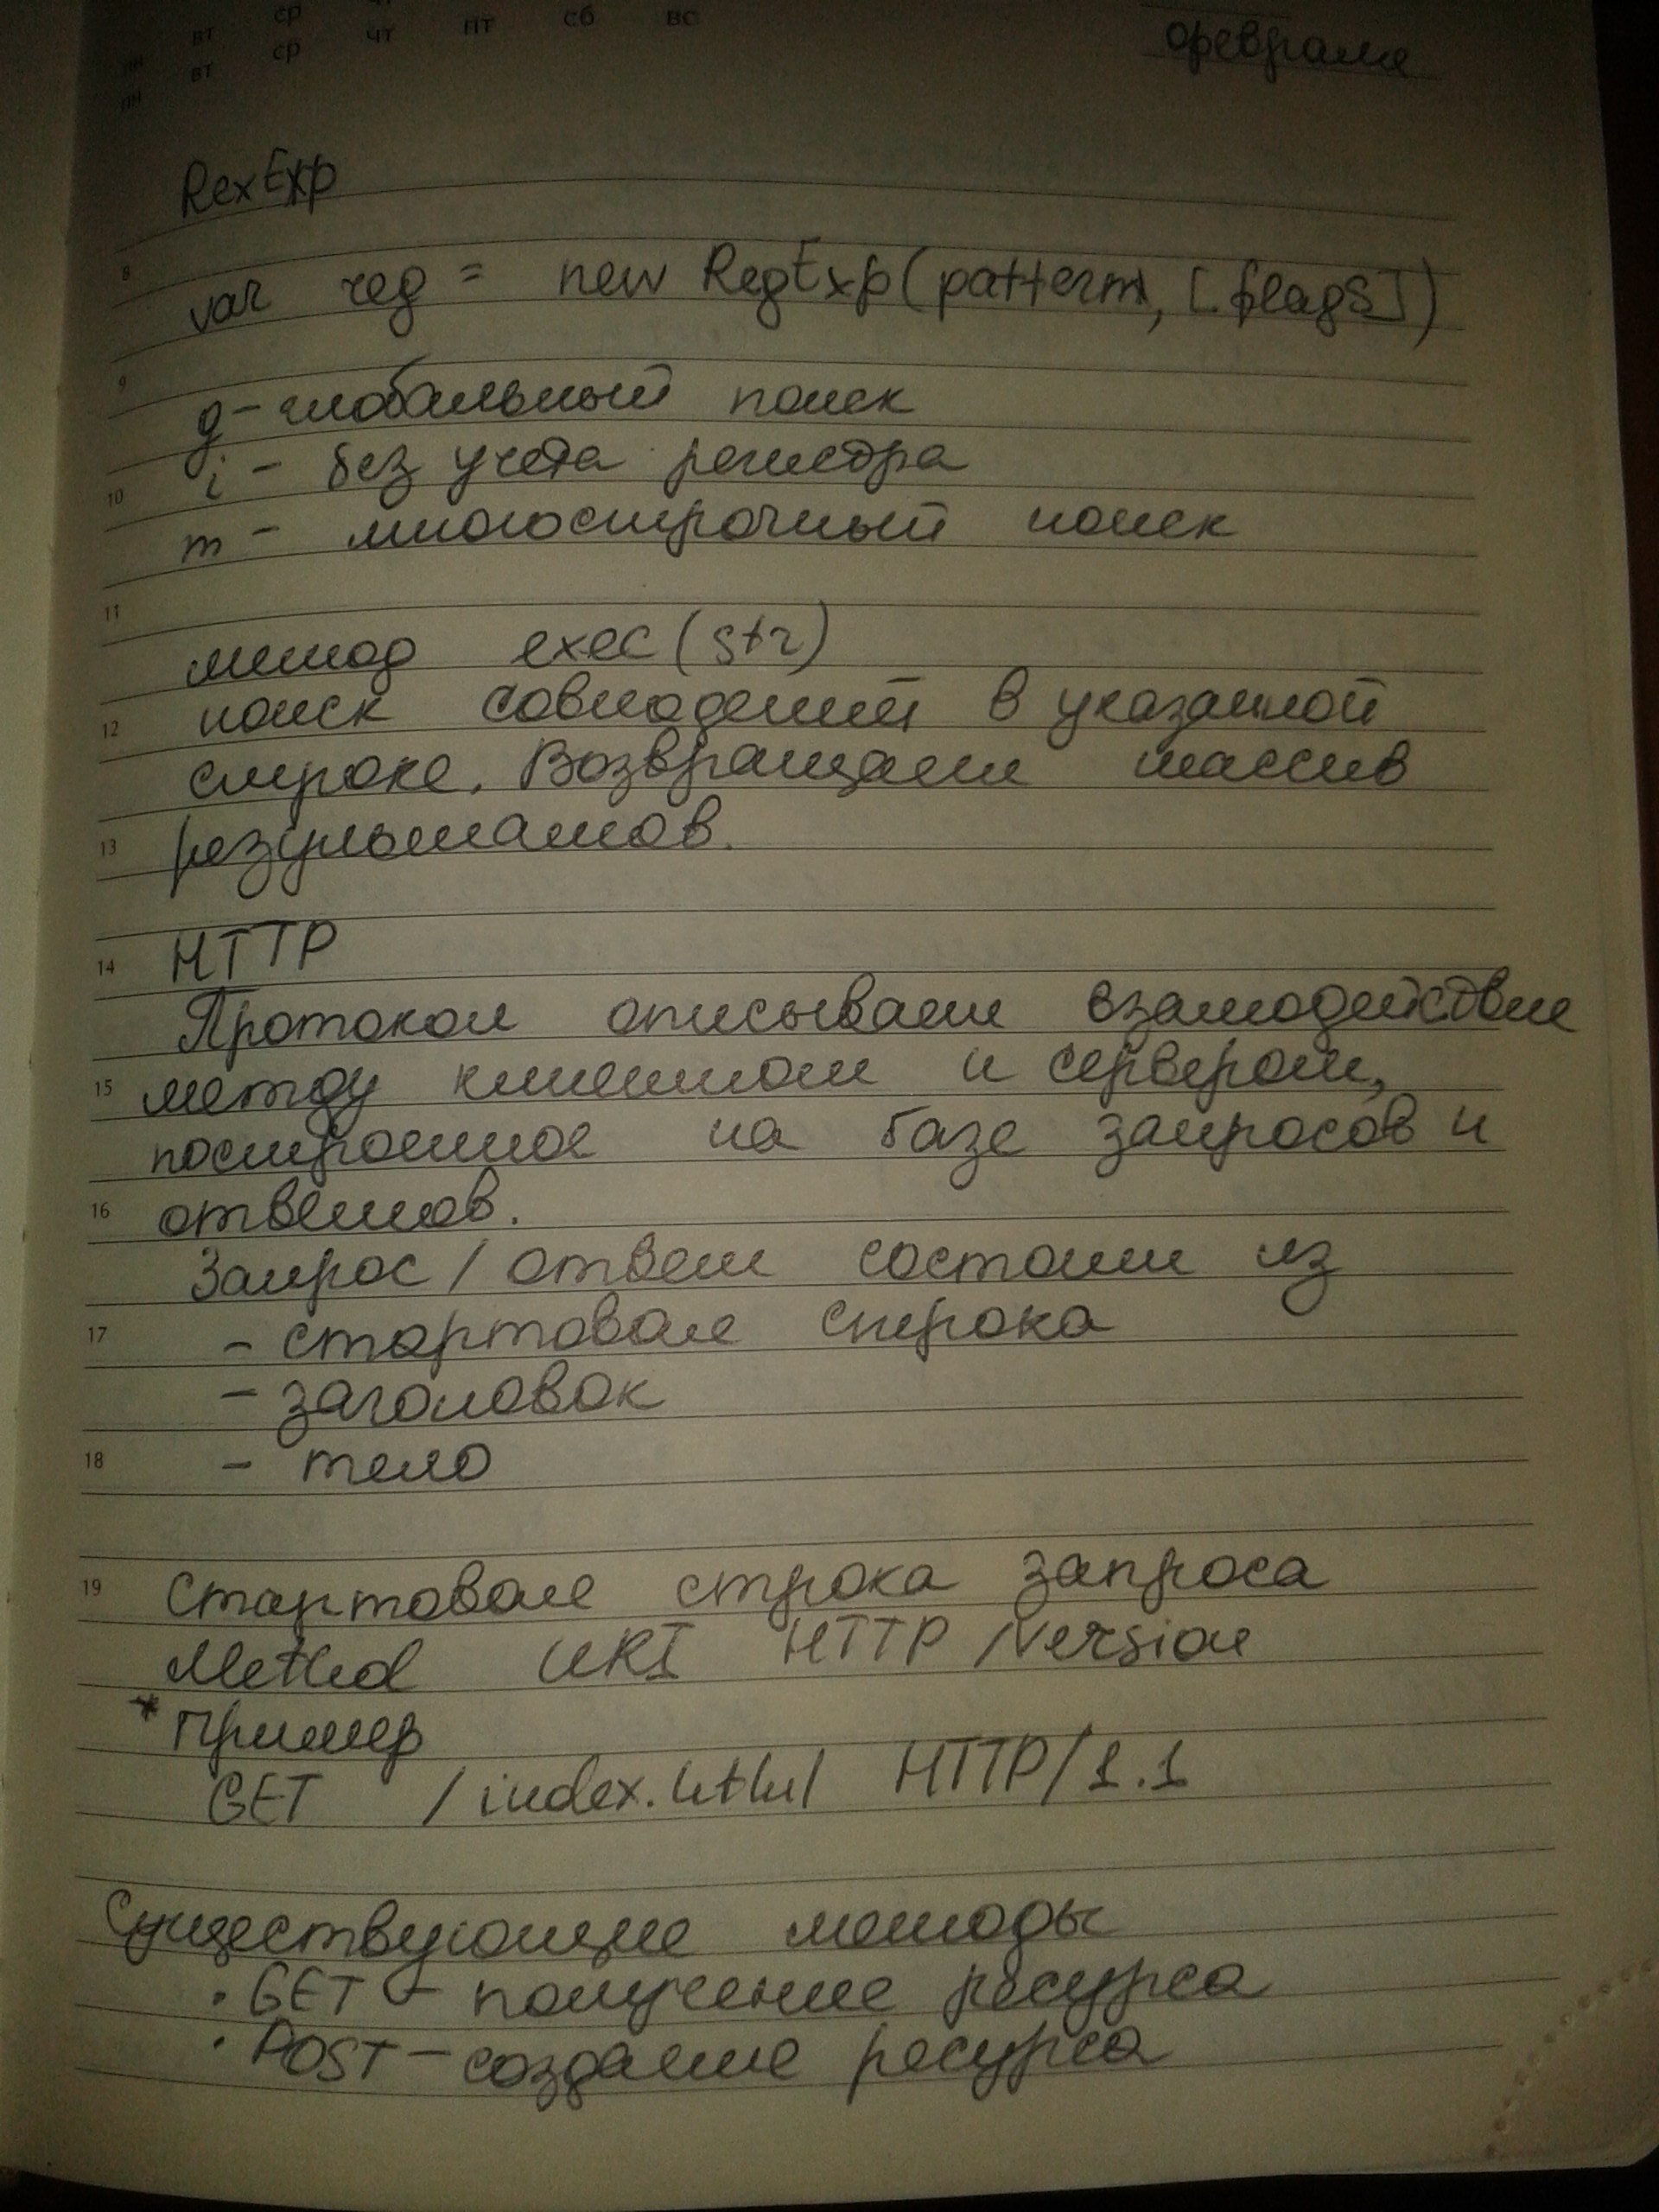 ср чт
вт ср чт пт сб вс
пн вт
пн
февраля
RexExp
8
var reg = new RegExp(pattern, [flags])
9
g - глобальный поиск
i - без учета регистра
10
m - многострочный поиск
11
метод exec(str)
12 поиск совпадений в указанной
строке. Возвращает массив
13 результатов.
14 HTTP
Протокол описывает взамодействие
15 между клиентом и сервером,
построенное на базе запросов и
16 ответов.
Запрос / ответ состоит из
17 - стартовая строка
- заголовок
18 - тело
19 Стартовая строка запроса
Method URI HTTP /Version
* Пример
GET /index.html HTTP/1.1
Существующие методы
· GET - получение ресурса
· POST - создание ресурса